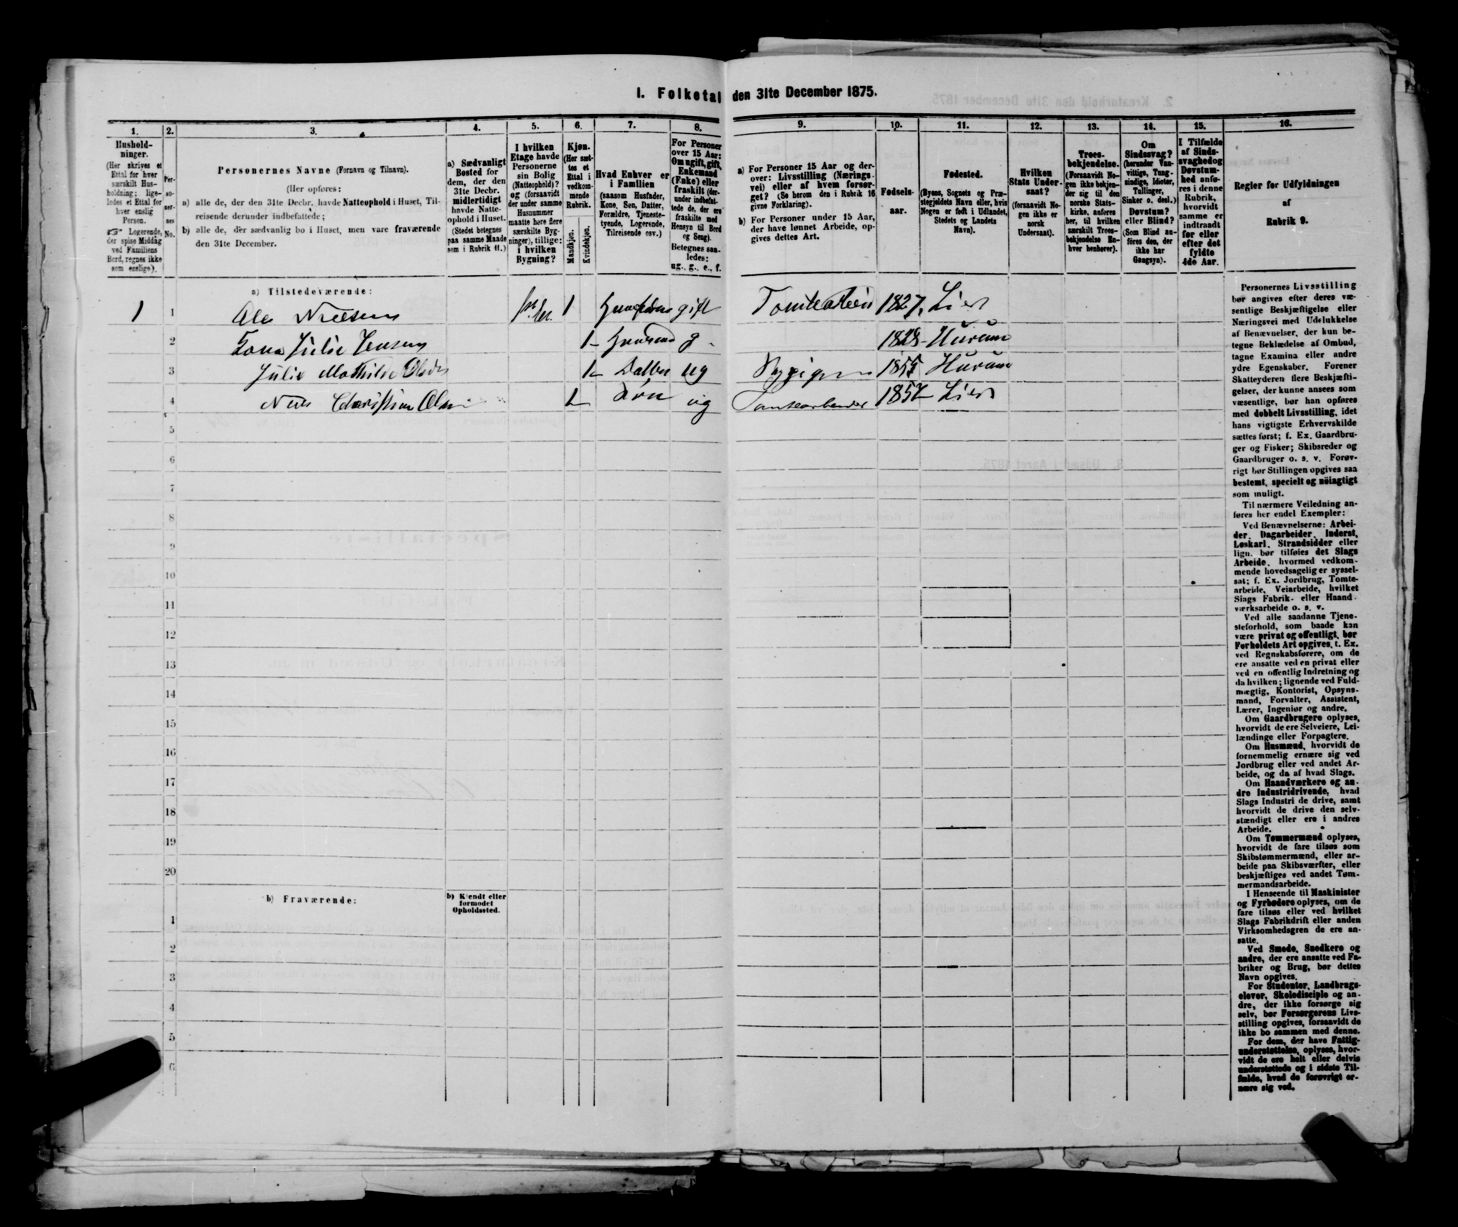 1. Folketal den 31te December 1875.
1. 2. 3. 4. 5. 6. 7. 8. 9. 10. 11. 12. 13. 14. 15. 16.
Hushold-
ninger.
(Her skrives et
Ettal for hver
særskilt Hus-
holdning; lige-
ledes et Ettal for
hver enslig
Person.
☞ Logerende,
der spise Middag
ved Familiens
Bord, regnes ikke
som enslige).
Per-
so-
ner-
nes
No.
Personernes Navne (Fornavn og Tilnavn).
(Her opføres:
a) alle de, der den 31te Decbr. havde Natteophold i Huset, Til-
reisende derunder indbefattede;
b) alle de, der sædvanlig bo i Huset, men vare fraværende
den 31te December.
a) Sædvanligt
Bosted for
dem, der den
31te Decbr.
midlertidigt
havde Natte-
ophold i Huset.
(Stedet betegnes
paa samme Maade
som i Rubrik 11.)
I hvilken
Etage havde
Personerne
sin Bolig
(Natteophold)?
og (forsaavidt
der under samme
Husnummer
maatte høre flere
særskilte Byg-
ninger), tillige:
i hvilken
Bygning?
Kjøn.
(Her sæt-
tes et
Ettal i
vedkom-
mende
Rubrik.
Mandkjøn.
Kvindekjøn.
Hvad Enhver er
i Familien
(saasom Husfader,
Kone, Søn, Datter,
Forældre, Tjeneste-
tyende, Logerende,
Tilreisende osv.)
For Personer
over 15 Aar:
Om ugift, gift,
Enkemand
(Enke) eller
fraskilt (der-
under indbefat-
tede de, der ere
fraskilte med
Hensyn til Bord
og Seng).
Betegnes saa-
ledes:
ug., g., e., f.
a) For Personer 15 Aar og der-
over: Livsstilling (Nærings-
vei) eller af hvem forsør-
get? (Se herom den i Rubrik 16
givne Forklaring).
b) For Personer under 15 Aar,
der have lønnet Arbeide, op-
gives dettes Art.
Fødsels-
aar.
Fødested.
(Byens, Sognets og Præ-
stegjeldets Navn eller, hvis
Nogen er født i Udlandet,
Stedets og Landets
Navn).
Hvilken
Stats Under-
saat?
(forsaavidt No-
gen ikke er
norsk
Undersaat).
Troes-
bekjendelse.
(Forsaavidt No-
gen ikke bekjen-
der sig til den
norske Stats-
kirke, anføres
her, til hvilken
særskilt Troes-
bekjendelse En-
hver henhører).
Om
Sindssvag?
(herunder Van-
vittige, Tung-
sindige, Idioter,
Tullinger,
Sinker o. desl.)
Døvstum?
eller Blind?
(Som Blind an-
føres den, der
ikke har
Gangsyn).
I Tilfælde
af Sinds-
svaghed og
Døvstum-
hed anfø-
res i denne
Rubrik,
hvorvidt
samme er
indtraadt
før eller
efter det
fyldte
4de Aar.
Regler for Udfyldningen
af
Rubrik 9.
a) Tilstedeværende:
1 1 Ole Nielsen 1 gift 1827 Lier
2 Julie Jensen 1 g 1828 Hurum
3 Julie Mathilde 1 Datter ug 1855 Hurum
4 Nils Christian Olsen 1 Søn ug Tomtearbeider 1857 Lier
5
6
7
8
9
10
11
12
13
14
15
16
17
18
19
20
b) Fraværende:
b) Kjendt eller
formodet
Opholdssted.
1
2
3
4
5
6
Personernes Livsstilling
bør angives efter deres væ-
sentlige Beskjæftigelse eller
Næringsvei med Udelukkelse
af Benævnelser, der kun be-
tegne Beklædelse af Ombud,
tagne Examina eller andre
ydre Egenskaber. Forener
Skatteyderen flere Beskjæfti-
gelser, der kunne ansees som
væsentlige, bør han opføres
med dobbelt Livsstilling, idet
hans vigtigste Erhvervskilde
sættes først; f. Ex. Gaardbru-
ger og Fisker; Skibsreder og
Gaardbruger o. s. v. Forøv-
rigt bør Stillingen opgives saa
bestemt, specielt og nöiagtigt
som muligt.
Til nærmere Veiledning an-
føres her endel Exempler:
Ved Benævnelserne: Arbei-
der, Dagarbeider, Inderst,
Løskarl, Strandsidder eller
lign. bør tilføies det Slags
Arbeide, hvormed vedkom-
mende hovedsagelig er syssel-
sat; f. Ex. Jordbrug, Tomte-
arbeide, Veiarbeide, hvilket
Slags Fabrik- eller Haand-
værksarbeide o. s. v.
Ved alle saadanne Tjene-
steforhold, som baade kan
være privat og offentligt, bør
Forholdets Art opgives, f. Ex.
ved Regnskabsførere, om de
ere ansatte ved en privat eller
ved en offentlig Indretning og
da hvilken; lignende ved Fuld-
mægtig, Kontorist, Opsyns-
mand, Forvalter, Assistent,
Lærer, Ingeniør og andre.
Om Gaardbrugere oplyses,
hvorvidt de ere Selveiere, Lei-
lændinge eller Forpagtere.
Om Husmænd, hvorvidt de
fornemmelig ernære sig ved
Jordbrug eller ved andet Ar-
beide, og da af hvad Slags.
Om Haandværkere og an-
dre Industridrivende, hvad
Slags Industri de drive, samt
hvorvidt de drive den selv-
stændigt eller ere i andres
Arbeide.
Om Tømmermænd oplyses,
hvorvidt de fare tilsøs som
Skibstømmermænd, eller ar-
beide paa Skibsværfter, eller
beskjæftiges ved andet Tøm-
mermandsarbeide.
I Henseende til Maskinister
og Fyrbødere oplyses, om de
fare tilsøs eller ved hvilket
Slags Fabrikdrift eller anden
Virksomhedsgren de ere an-
satte.
Ved Smede, Snedkere og
andre, der ere ansatte ved Fa-
briker og Brug, bør dettes
Navn opgives.
For Studenter, Landbrugs-
elever, Skoledisciple og an-
dre, der ikke forsørge sig
selv, bør Forsørgerens Livs-
stilling opgives, forsaavidt de
ikke bo sammen med denne.
For dem, der have Fattig-
understøttelse, oplyses, hvor-
vidt de ere helt eller delvis
understøttede og i sidste Til-
fælde, hvad de forøvrigt er-
nære sig ved.